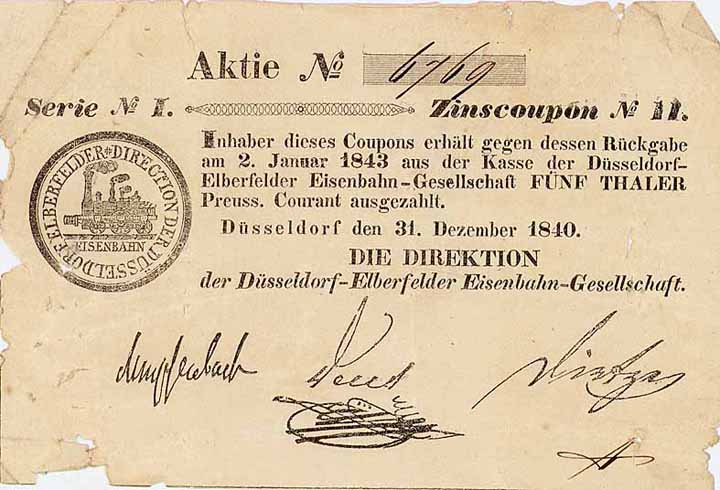 Aktie № 6769
Serie № I. Zinscoupon № 11.
DIRECTION DER DÜSSELDORF ELBERFELDER
EISENBAHN
Inhaber dieses Coupons erhält gegen dessen Rückgabe
am 2. Januar 1843 aus der Kasse der Düsseldorf-
Elberfelder Eisenbahn-Gesellschaft FÜNF THALER
Preuss. Courant ausgezahlt.
Düsseldorf den 31. Dezember 1840.
DIE DIREKTION
der Düsseldorf-Elberfelder Eisenbahn-Gesellschaft.